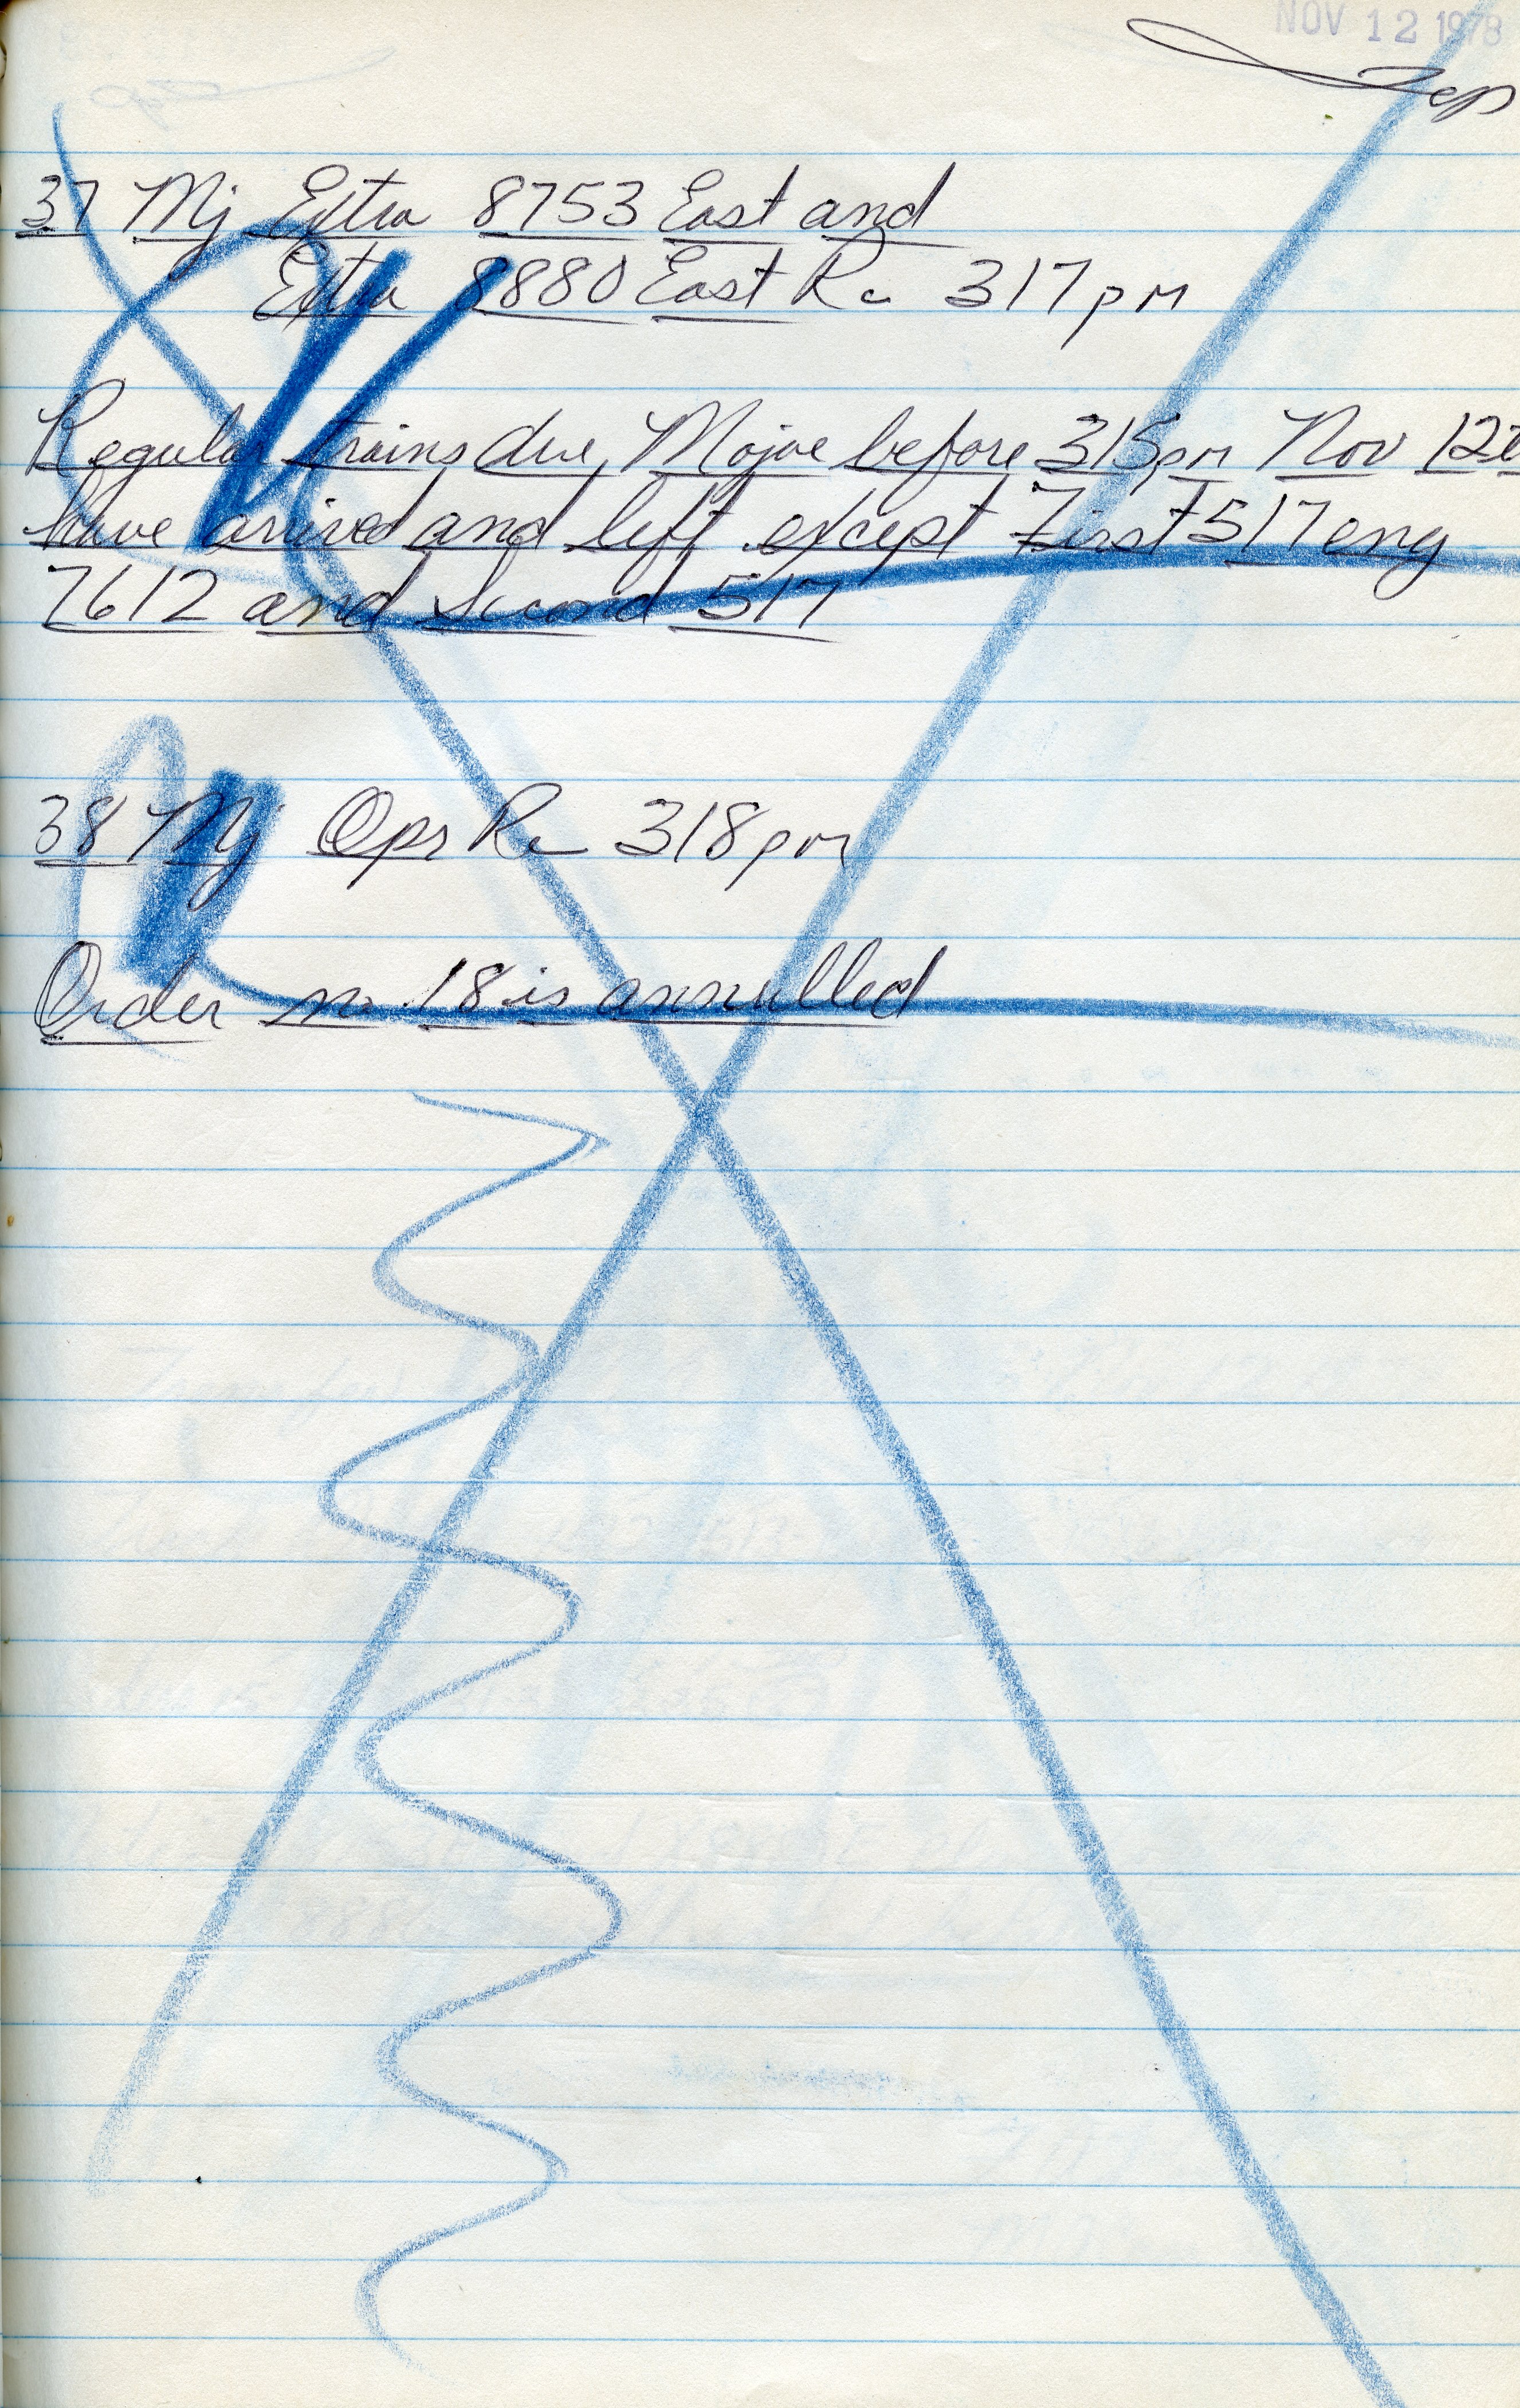 NOV 12 1978
37 Mj Extra 8753 East and
Extra 8880 East Rc 317 pm
Regular trains due Mojave before 315 pm Nov 12th
have arrived and left except First 517 eng
7612 and Second 517
38 Mj Opr Rc 318 pm
Order no. 18 is annulled